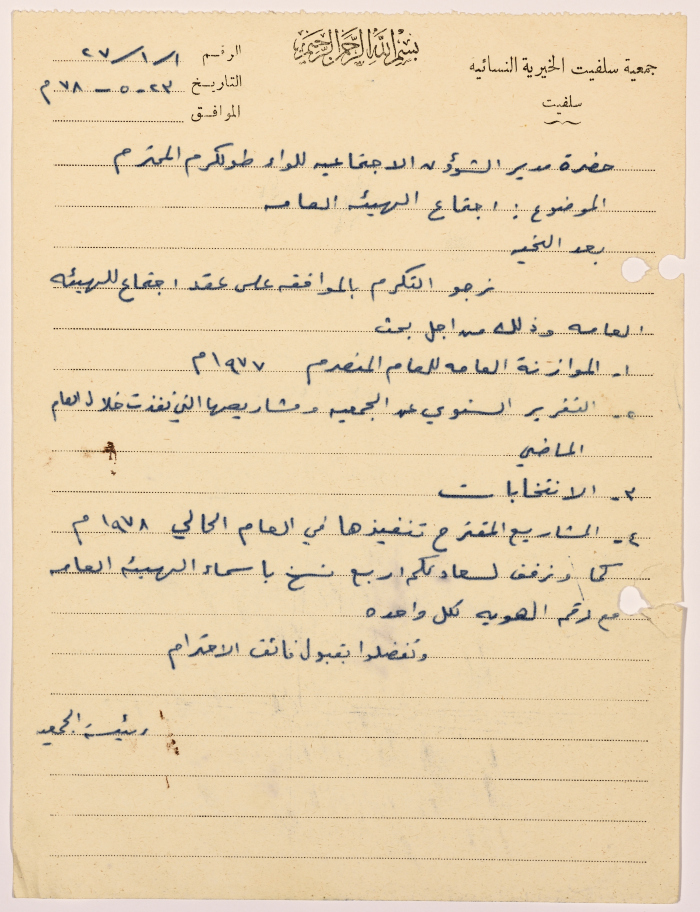 بسم الله الرحمن الرحيم
جمعية سلفيت الخيرية النسائيه
سلفيت
الرقم ٢٧/١/١
التاريخ ٢٣-٥-٧٨م
الموافق
حضرة مدير الشؤون الاجتماعيه للواء طولكرم المحترم
الموضوع : اجتماع الهيئه العامه
بعد التحيه
نرجو التكرم بالموافقه على عقد اجتماع للهيئه
العامه وذلك من اجل بحث
١- الموازنة العامه للعام المنصرم ١٩٧٧م
٢- التقرير السنوي عن الجمعيه ومشاريعها التي نفذت خلال العام
الماضي
٣- الانتخابات
٤- المشاريع المقترح تنفيذها في العام الحالي ١٩٧٨م
كما ونرفق لسعادتكم اربع نسخ باسماء الهيئه العامه
مع رقم الهويه لكل واحده
وتفضلوا بقبول فائق الاحترام
رئيسة الجمعيه